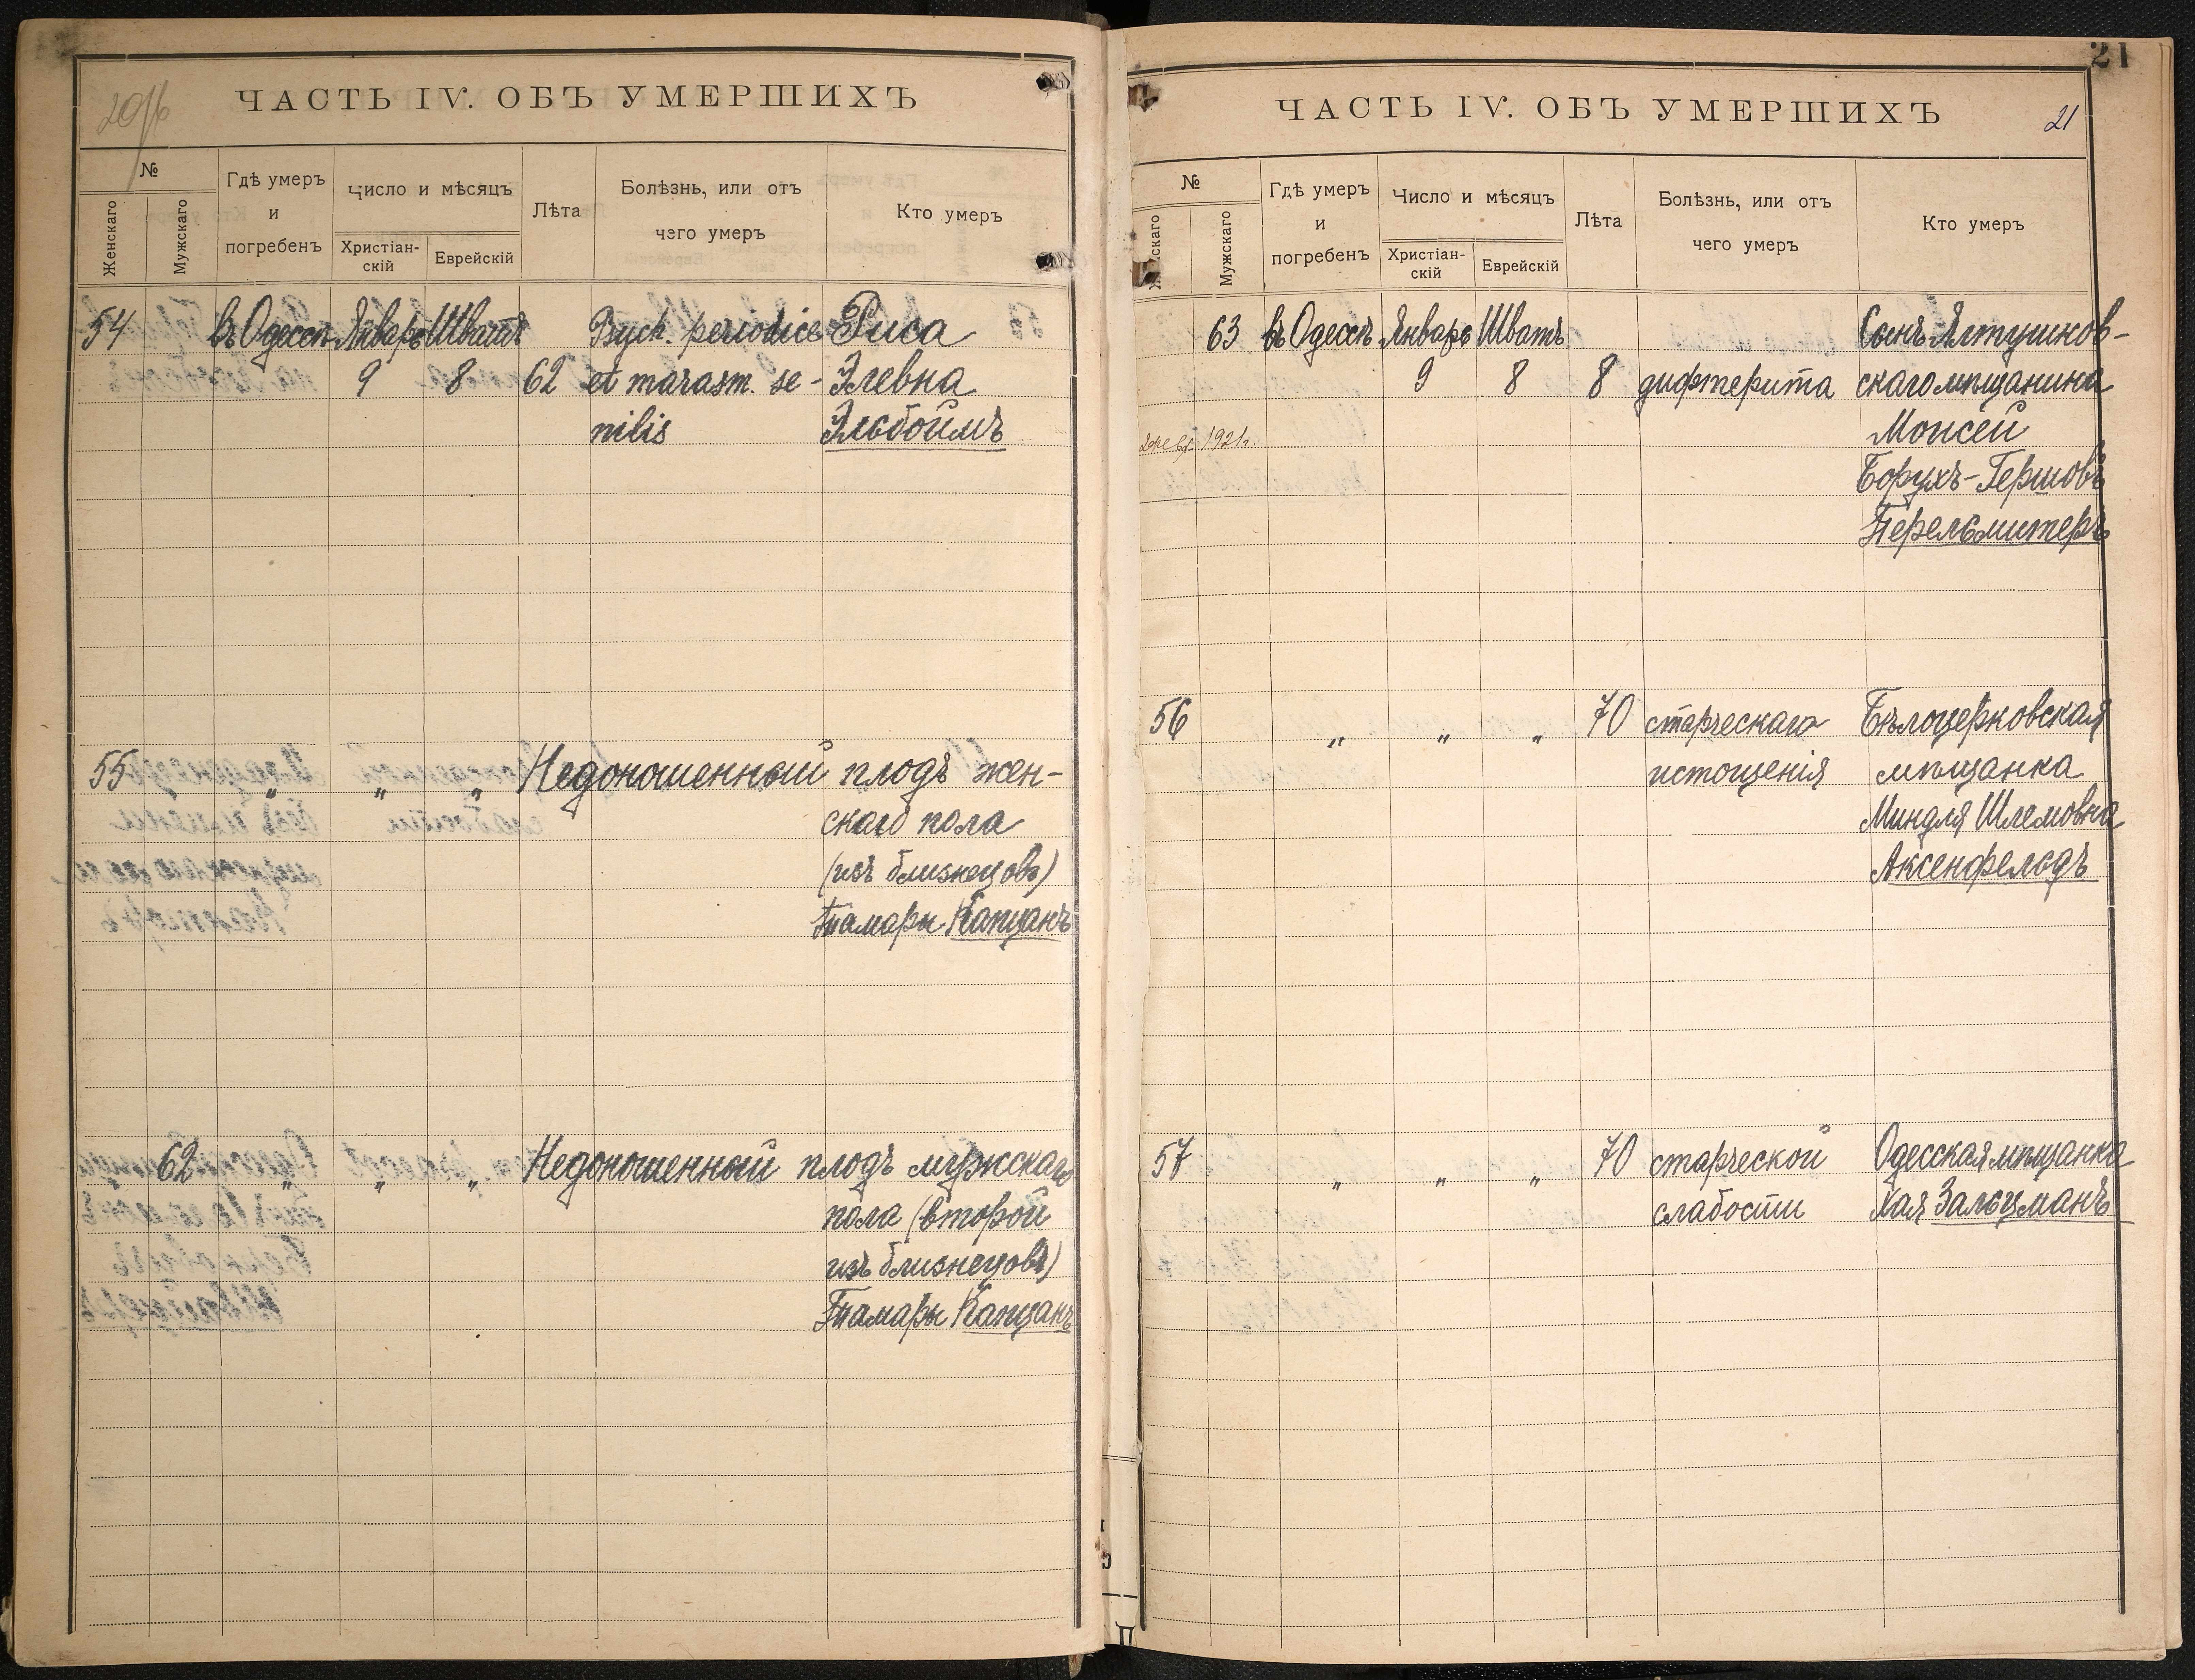 20об
ЧАСТЬ IV. ОБЪ УМЕРШИХЪ
№
Женскаго
Мужскаго
Гдѣ умеръ
и
погребенъ
Число и мѣсяцъ
Христіан-
скій
Еврейскій
Лѣта
Болѣзнь, или отъ
чего умеръ
Кто умеръ
54 въ Одессѣ Январь Шватъ Psych. periodice Риса
9 8 62 et marasm. se- Элевна
nilis Эльбоймъ
55 „ „ „ Недоношенный плодъ жен-
скаго пола
(изъ близнецовъ)
Тамары Капцанъ
62 „ „ „ Недоношенный плодъ мужскаго
пола (второй
изъ близнецовъ)
Тамары Капцанъ
21
ЧАСТЬ IV. ОБЪ УМЕРШИХЪ
21
№
Женскаго
Мужскаго
Гдѣ умеръ
и
погребенъ
Число и мѣсяцъ
Христіан-
скій
Еврейскій
Лѣта
Болѣзнь, или отъ
чего умеръ
Кто умеръ
63 въ Одессѣ Январь Шватъ Сынъ Ялтушков-
9 8 8 дифтерита скаго мѣщанина
1921г. Моисей
Борухъ-Гершовъ
Перельмитеръ
56 „ „ „ 70 старческаго Бѣлоцерковская
истощенія мѣщанка
Миндля Шлемовна
Аксенфельдъ
57 „ „ „ 70 старческой Одесская мѣщанка
слабости Хая Зальцманъ